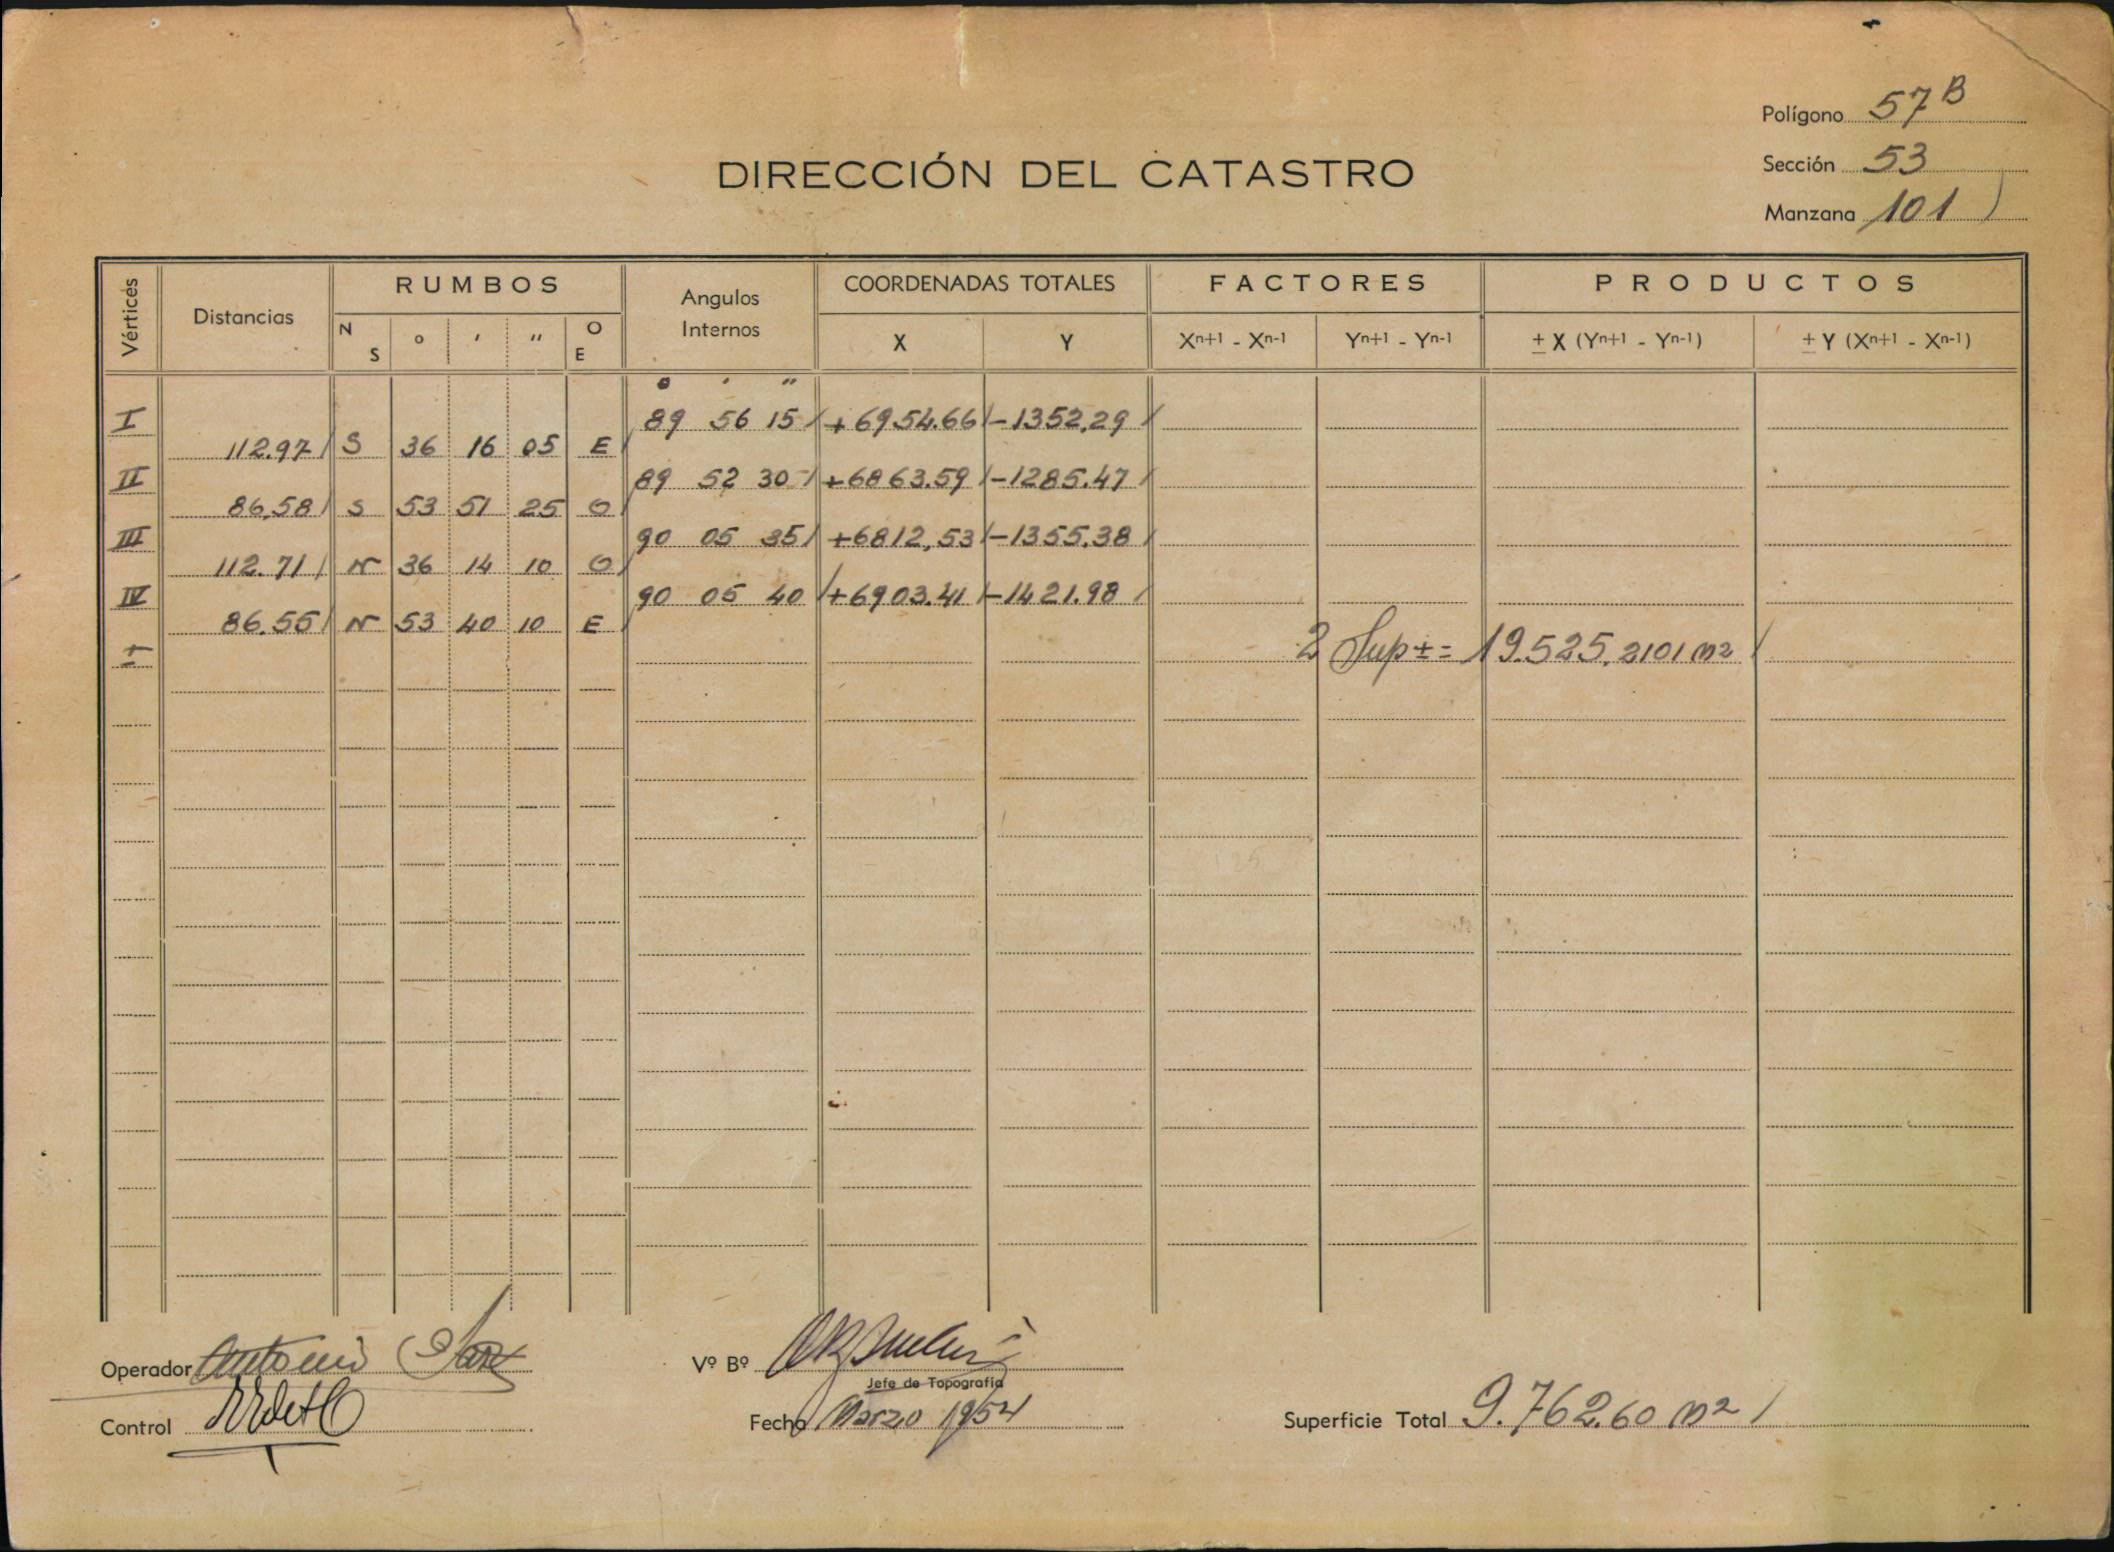 Polígono 57 B
DIRECCIÓN DEL CATASTRO
Sección 53
Manzana 101
Vértices
Distancias
RUMBOS
N S
o ' "
O E
Angulos Internos
COORDENADAS TOTALES
X Y
FACTORES
Xn+1 - Xn-1 Yn+1 - Yn-1
PRODUCTOS
± X (Yn+1 - Yn-1) ± Y (Xn+1 - Xn-1)
o ' "
I 89 56 15 +6954.66 -1352.29
112.97 S 36 16 05 E
II 89 52 30 +6863.59 -1285.47
86.58 S 53 51 25 O
III 90 05 35 +6812.53 -1355.38
112.71 N 36 14 10 O
IV 90 05 40 +6903.41 -1421.98
86.55 N 53 40 10 E
I 2 Sup ± = 19.525.2101 m2
Operador Antonio
Vº Bº
Jefe de Topografía
Control
Fecha Marzo 1954
Superficie Total 9.762.60 m2